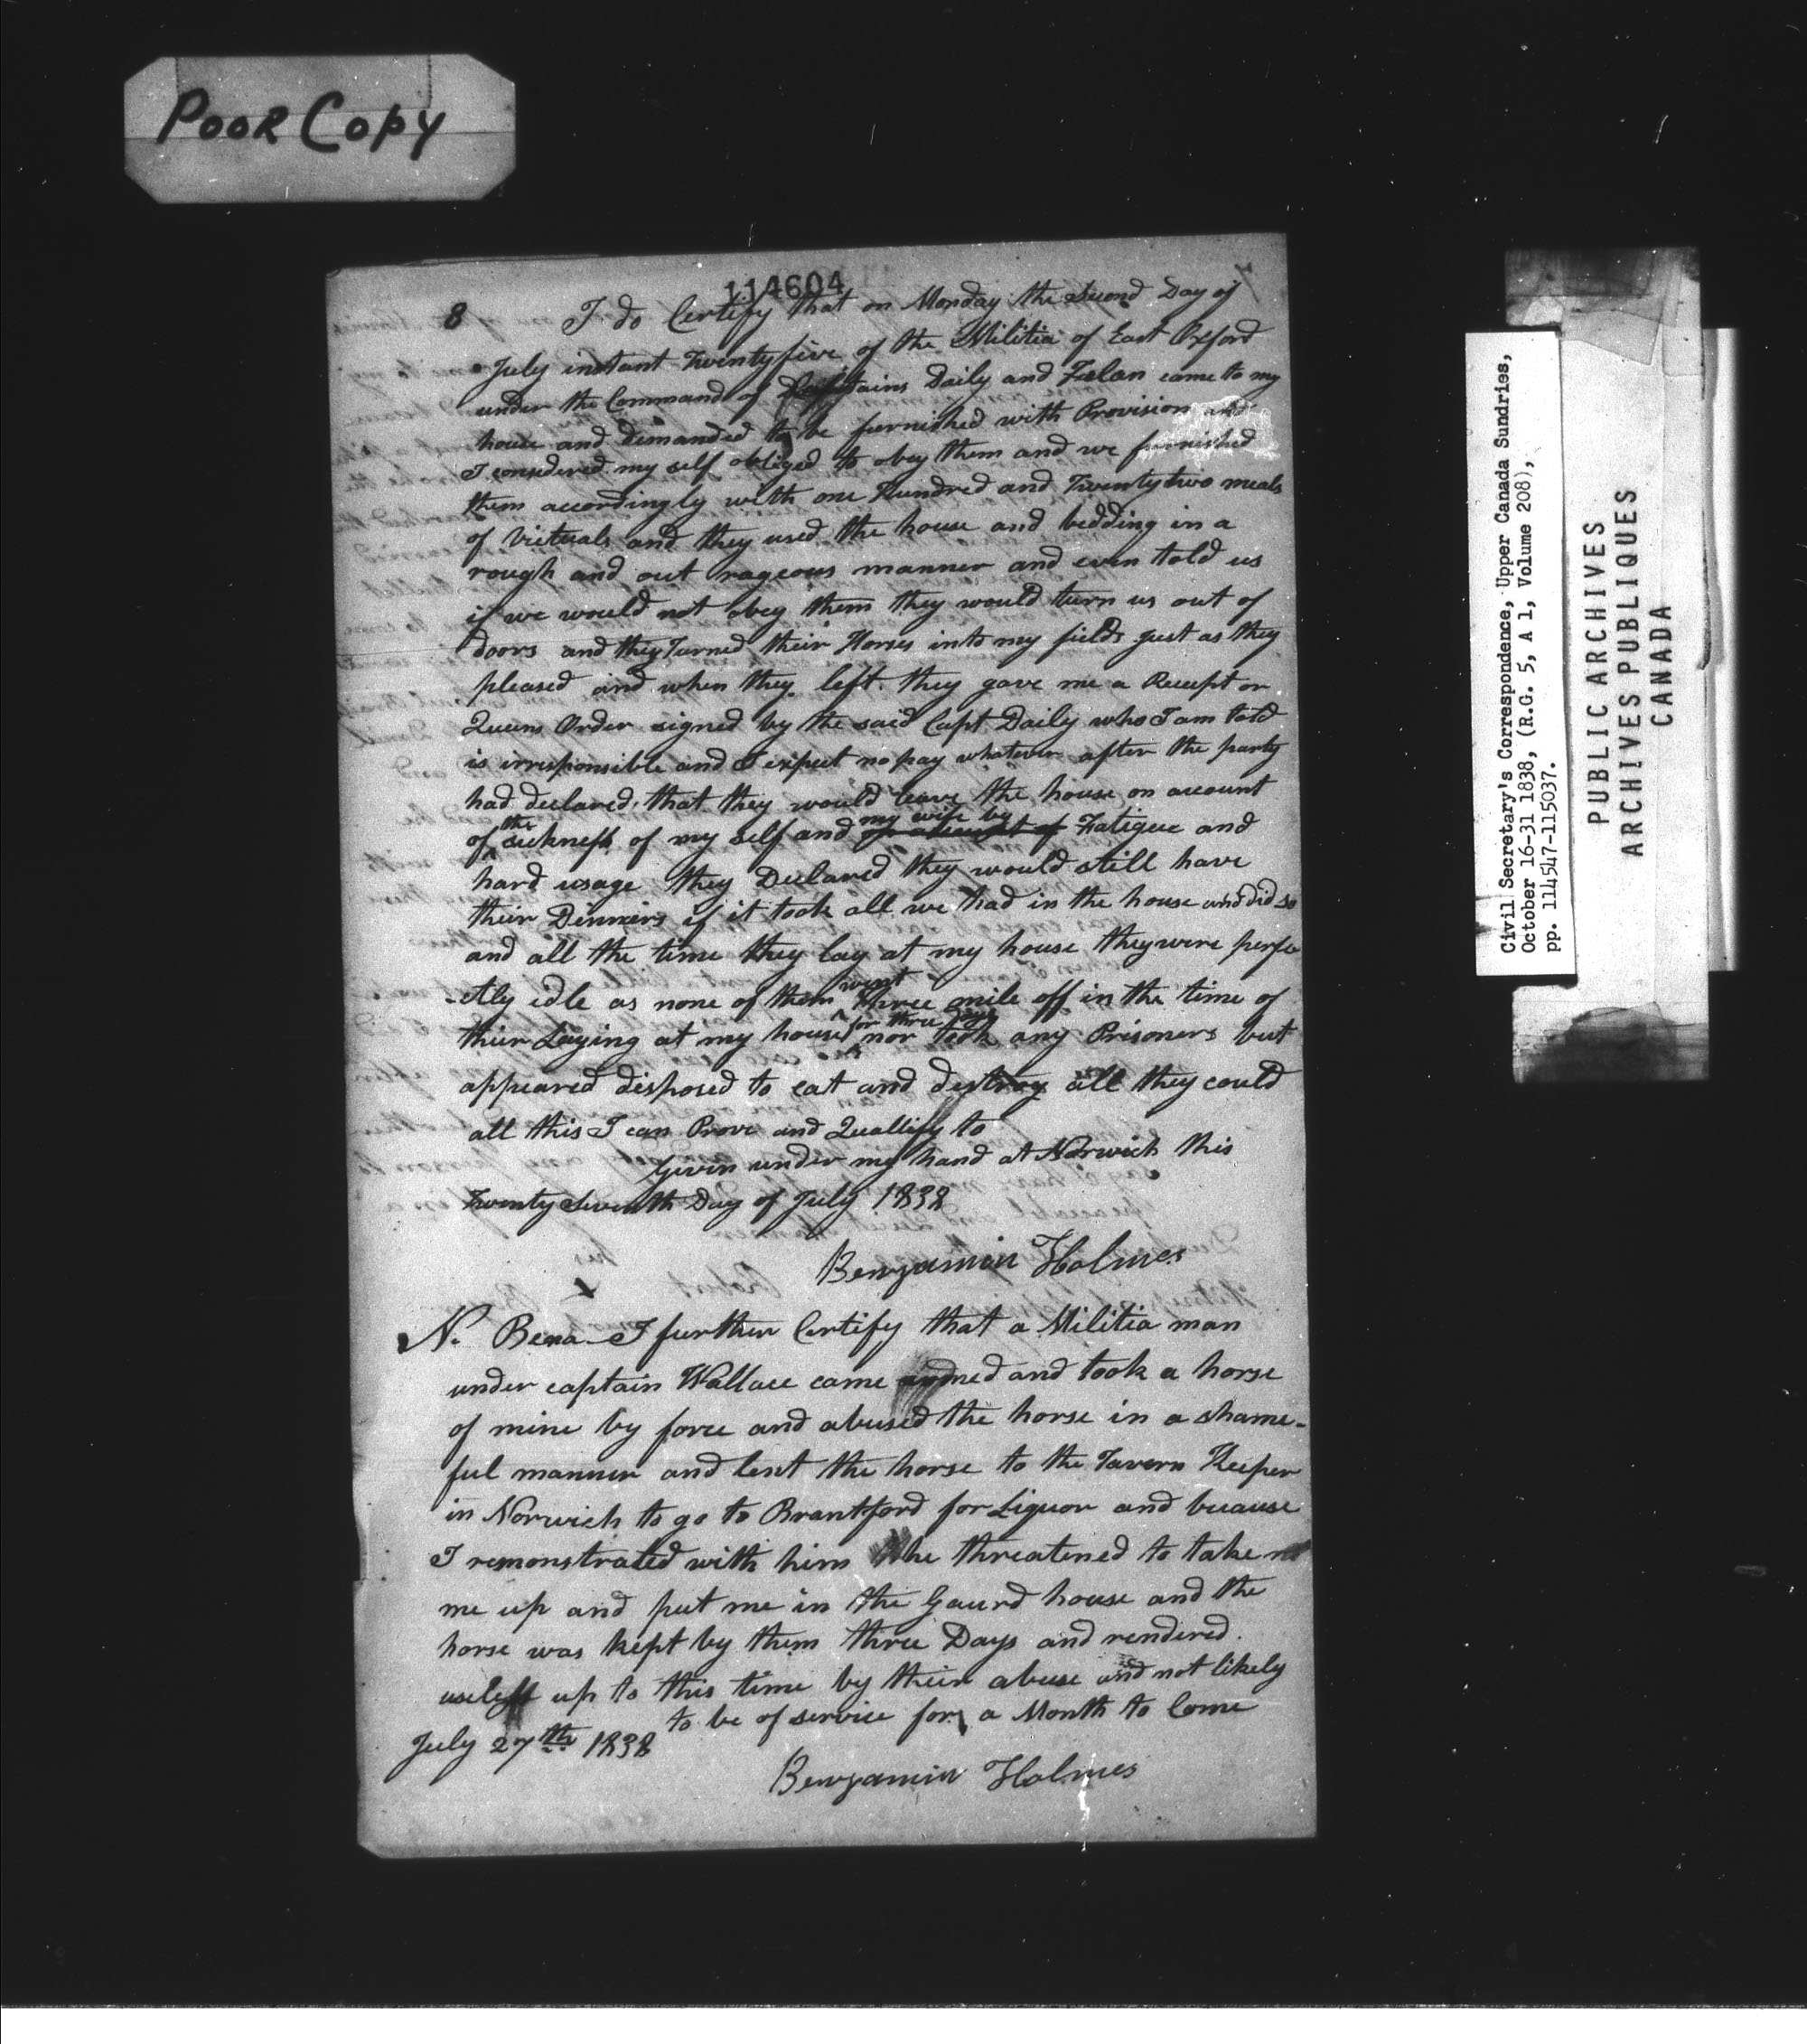 Poor Copy
114604
8 I do Certify that on Monday the Second Day of
July instant Twenty five of the Militia of East Oxford
under the Command of Captains Daily and Felan came to my
house and demanded to be furnished with Provision and
I considered my self obliged to obey them and we furnished
them accordingly with one Hundred and Twenty two meals
of victuals and they used the house and bedding in a
rough and out rageous manner and even told us
if we would not obey them they would turn us out of
doors and they Turned their Horses into my fields just as they
pleased and when they left they gave me a Receipt or
Queens Order signed by the said Capt Daily who I am told
is irresponsible and I expect no pay whatever after the party
had declared that they would leave the house on account
of the sickness of my self and my wife by Fatigue and
hard usage they Declared they would still have
their Dinners if it took all we had in the house and did so
and all the time they lay at my house they were perfe
-ctly idle as none of them went three mile off in the time of
their Laying at my house for three days nor took any Prisoners but
appeared disposed to eat and destroy all they could
all this I can Prove and Quallify to
Given under my hand at Norwich this
Twenty Seventh Day of July 1838
Benjamin Holmes
N. Bena I further Certify that a Militia man
under captain Wallace came armed and took a horse
of mine by force and abused the horse in a shame-
ful manner and lent the horse to the Tavern Keeper
in Norwich to go to Brantford for Liquor and because
I remonstrated with him he threatened to take
me up and put me in the Gaurd house and the
horse was kept by them three Days and rendered
useless up to this time by their abuse and not likely
to be of service for a Month to Come
July 27th 1838
Benjamin Holmes
Civil Secretary's Correspondence, Upper Canada Sundries,
October 16-31 1838, (R.G. 5, A 1, Volume 208),
pp. 114547-115037.
PUBLIC ARCHIVES
ARCHIVES PUBLIQUES
CANADA